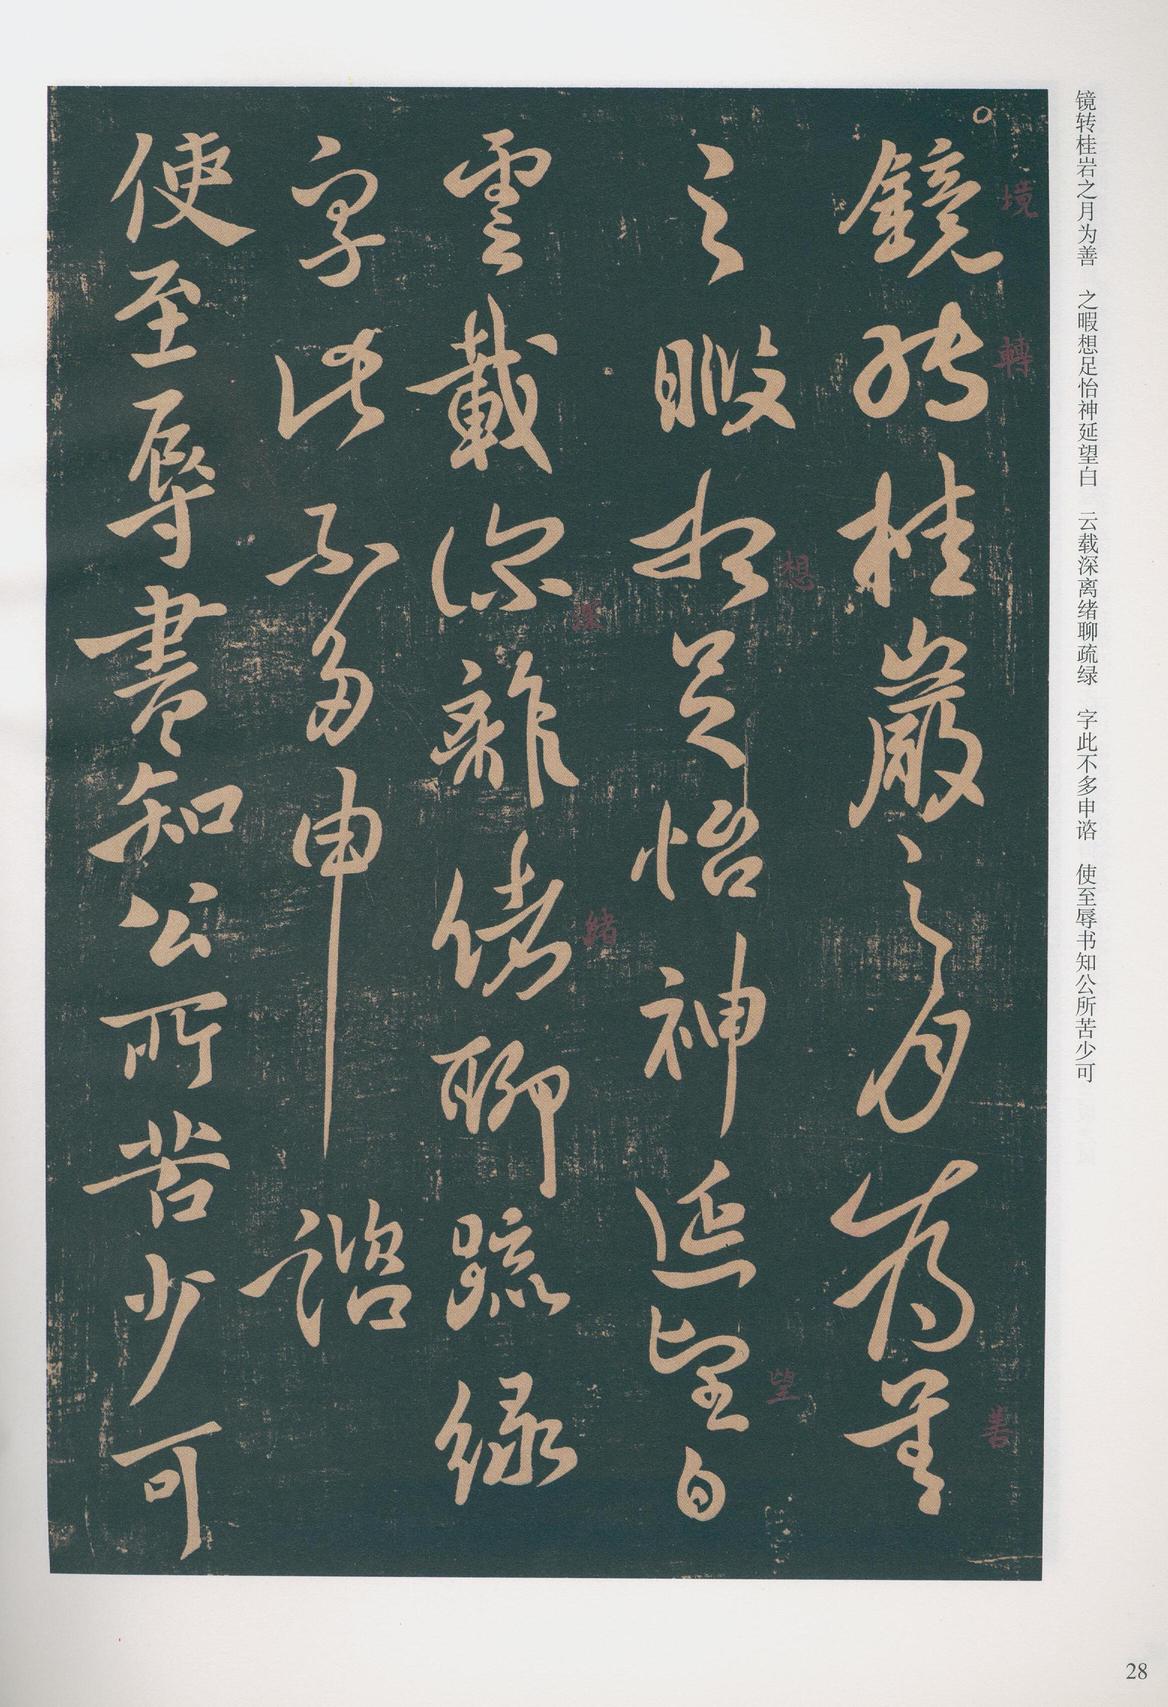 镜转桂岩之月为善　之暇想足怡神延望白　云载深离绪聊疏绿　字此不多申谘　使至辱书知公所苦少可
鏡轉桂巖之月為善
之暇想足怡神延望白
雲載深離緒聊疏綠
字此不多申諮
使至辱書知公所苦少可
境
轉
想
深
緒
望
善
28